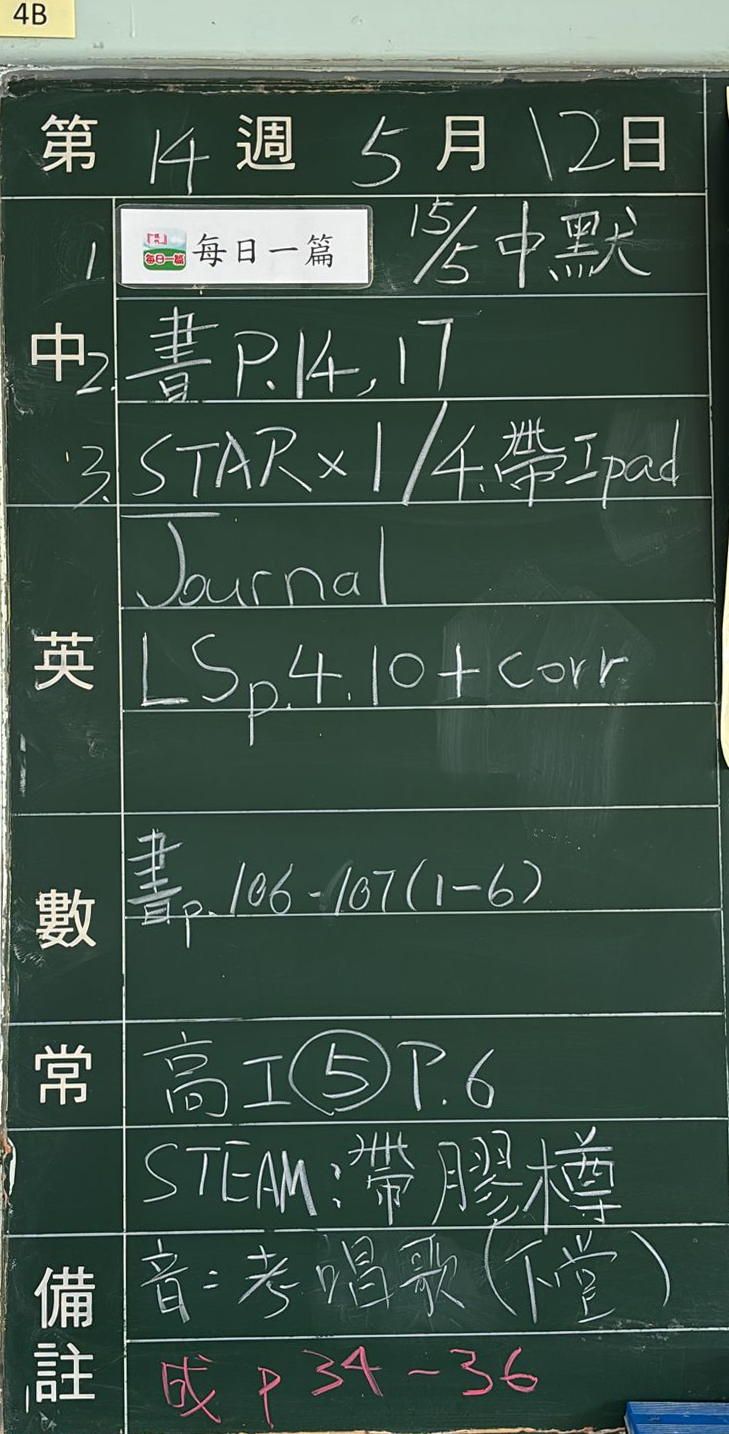 4B
第 14 週 5 月 12 日
中
1 每日一篇 15/5 中默
2. 書 P.14, 17
3. STAR x 1 / 4. 帶 Ipad
英
Journal
LS p.4.10 + corr
數
書 p. 106 - 107 (1-6)
常
高工⑤ P.6
STEAM:帶膠樽
備註
音:考唱歌(下堂)
成 p 34 - 36